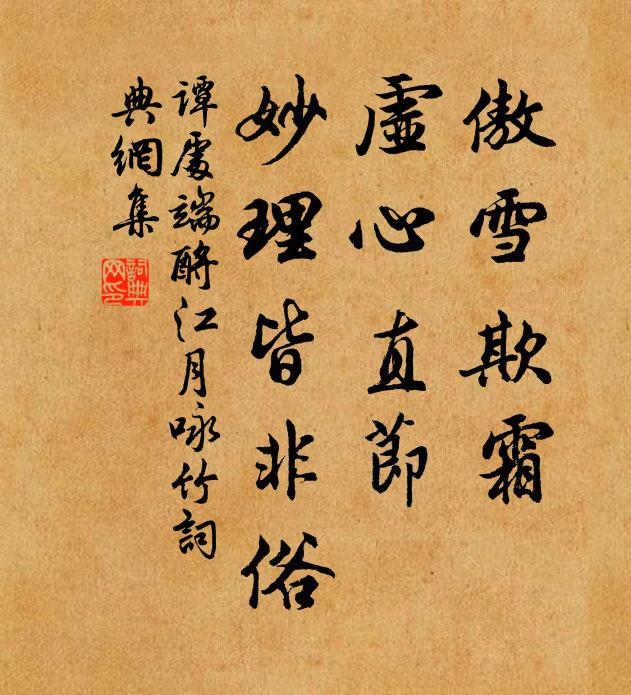 傲雪欺霜
虛心直節
妙理皆非俗
譚處端酹江月咏竹詞
典網集
詞典網印